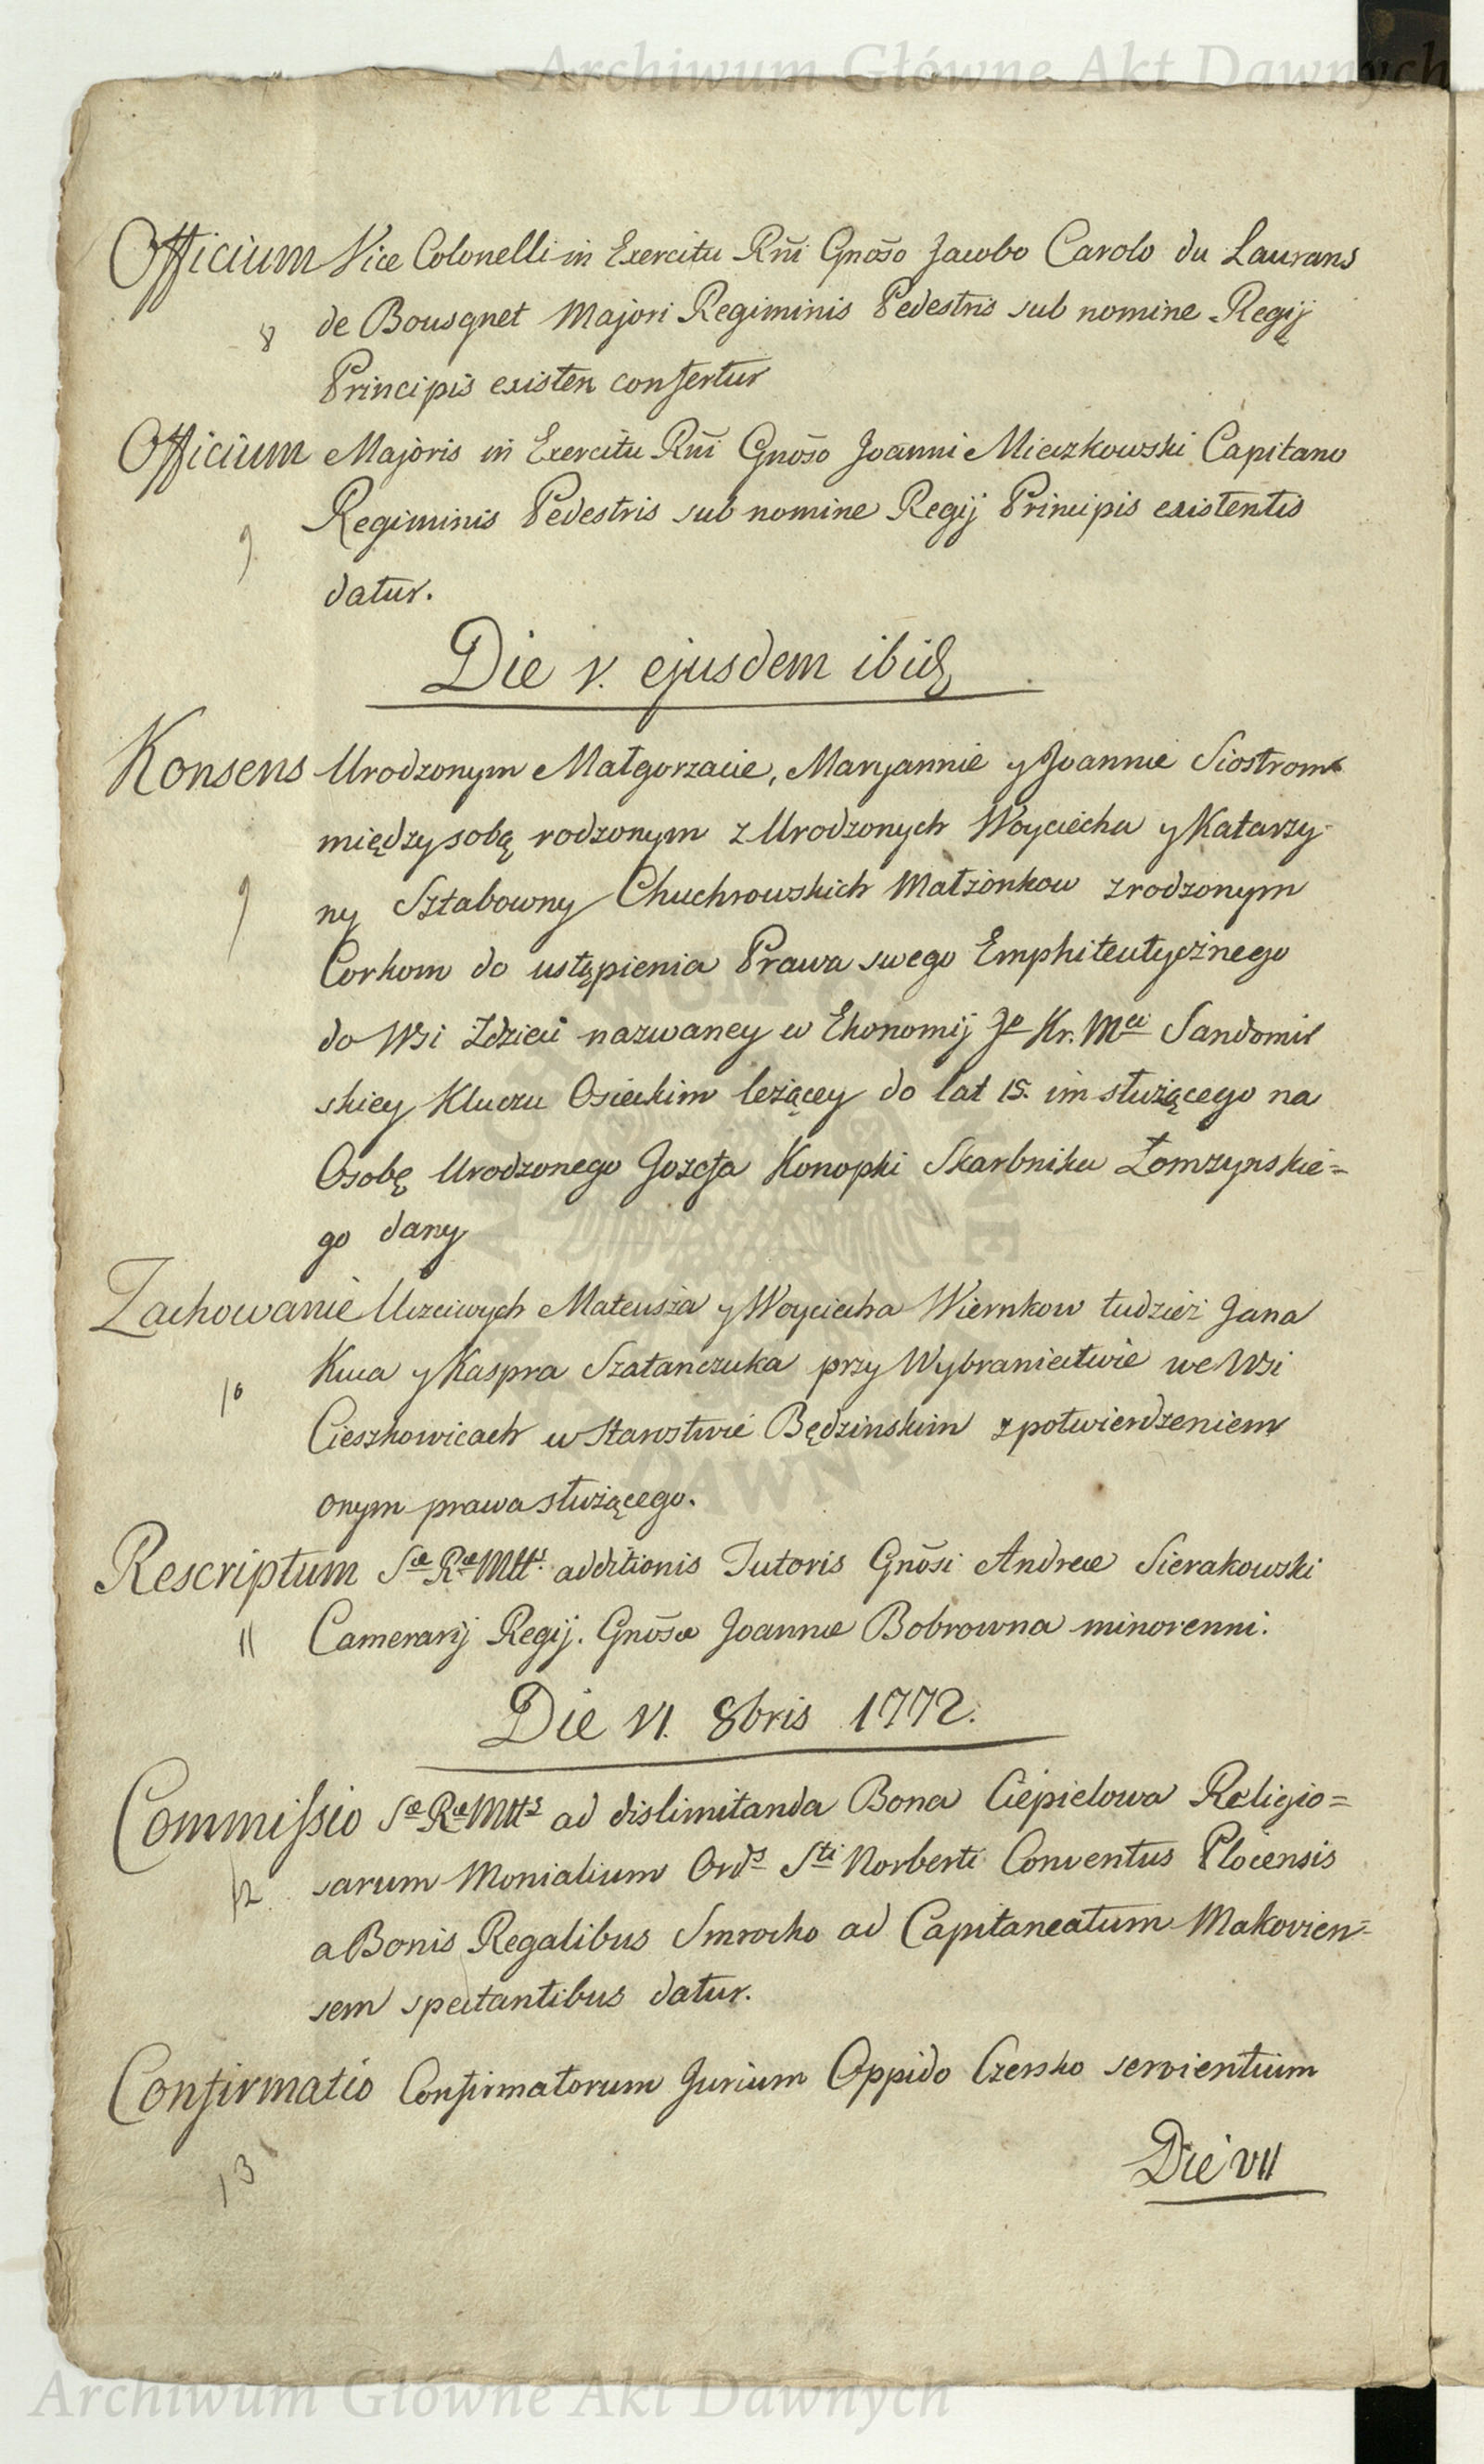 Archiwum Główne Akt Dawnych
Officium Vice Colonelli in Exercitu Rñi Gnōso Jacobo Carolo du Laurans
8 de Bousqnet Majori Regiminis Pedestris sub nomine Regij
Principis existen confertur
Officium Majoris in Exercitu Rñi Gnōso Joanni Mieczkowski Capitano
Regiminis Pedestris sub nomine Regij Principis existentis
9
datur.
Die V. ejusdem ibid
Konsens Urodzonym Małgorzacie, Maryannie y Joannie Siostrom
między sobą rodzonym z Urodzonych Woyciecha y Katarzy-
9 ny Sztabowny Chuchrowskich Małżonkow zrodzonym
Corkom do ustąpienia Prawa swego Emphiteutycznego
do Wsi Zdzieci nazwaney w Ekonomij Jo Kr. Mci Sandomir
skiey Kluczu Osieckim leżącey do lat 15. im służącego na
Osobę Urodzonego Jozefa Konopki Skarbnika Łomzynskie=
go dany
Zachowanie Uczciwych Mateusza y Woyciecha Wiernkow tudzież Jana
10 Kuca y Kaspra Szatanczuka przy Wybraniectwie we Wsi
Cieszkowicach w Starostwie Będzinskim z potwierdzeniem
onym prawa służącego.
Rescriptum Sæ Ræ Mtts additionis Tutoris Gnōsi Andreæ Sierakowski
11 Camerarij Regij. Gnōsæ Joannæ Bobrowna minorenni.
Die VI. 8bris 1772.
Commissio Sæ Ræ Mtts ad dislimitanda Bona Ciepielowa Religio=
12. sarum Monialium Ords Sti Norberti Conventus Plocensis
a Bonis Regalibus Smrocko ad Capitaneatum Makovien=
sem spectantibus datur.
Confirmatio Confirmatorum Jurium Oppido Czersko servientium
13
Die VII
Archiwum Główne Akt Dawnych